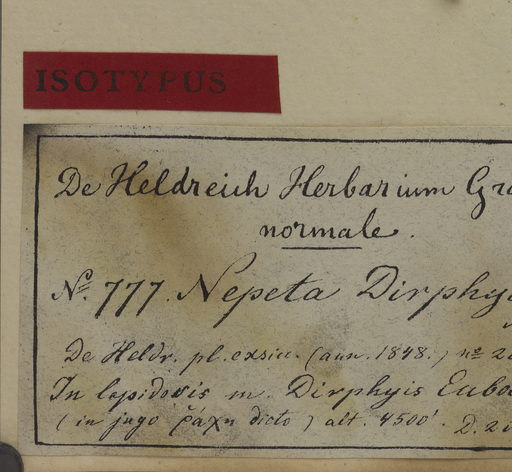 ISOTYPUS
De Heldreich Herbarium Gr
normale.
No. 777. Nepeta Dirphy
De Heldr. pl. exsicc. (ann. 1848.) no 2
In lapidosis m. Dirphyis Euboe
(in jugo ῥάχη dicto) alt. 4500'. D. 2